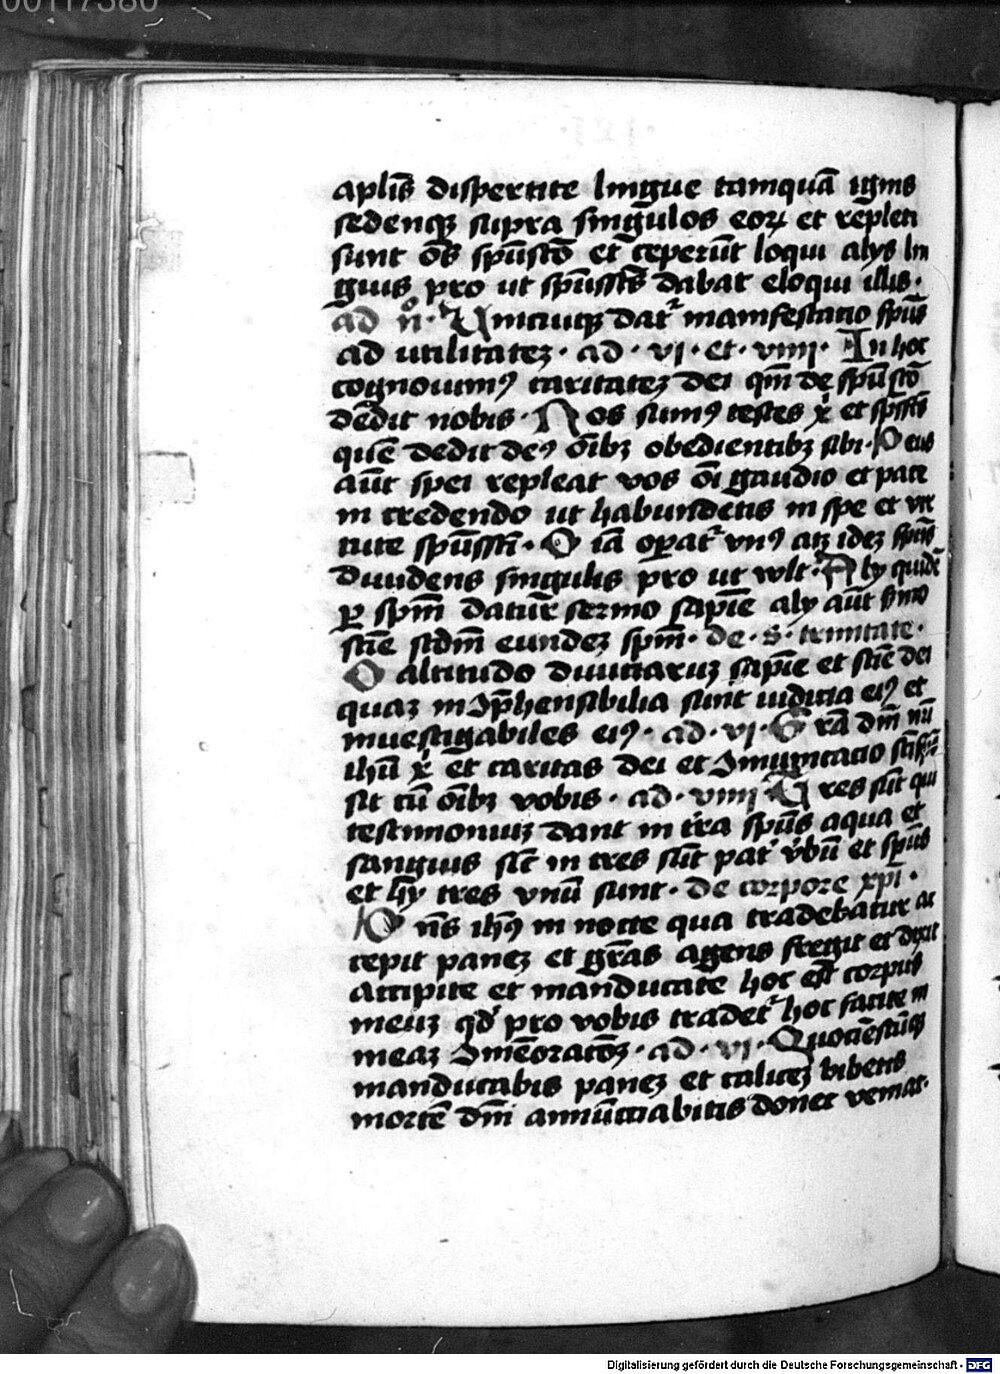 00117380
apl̅is dispertite lingue tamqua̅ ignis
sedenq̨ supra singulos eoꝝ et repleti
sunt o̅s spu̅sto̅ et ceperu̅t loqui alys lin
guis pro ut spu̅ssts̅ dabat eloqui illis ·
ad n° · Unicuiq̨ datr manifestacio spu̅s
ad utilitateʒ · ad · vi · et · viiii · In hoc
cognouimꝰ caritateʒ dei qm̅ de spu̅sto̅
dedit nobis · Nos sumꝰ testes
que̅ dedit deꝰ oi̅bʒ obedientibʒ sibi · Deus
au̅t spei repleat vos oi̅ gaudio et pace
in credendo ut habundetis in spe et vir
tute spu̅sst̅i · O ia̅ opatr vnꝰ atʒ ideʒ spu̅s
diuidens singulis pro ut wlt · Aly quide̅
ꝑ spm̅ datur sermo sapie̅ aly au̅t sermo
scie̅ scdm̅ eundeʒ spm̅ · de · s · trinitate ·
O altitudo diuiciaruʒ sapie̅ et scie̅ dei
quaʒ inꝯp̅hensibilia sunt iudicia eiꝰ et
inuestigabiles eiꝰ · ad · vi · Gra̅ dm̅ nri̅
ihu̅ x̅ et caritas dei et ꝯmunicacio
sit cu̅ oi̅bʒ vobis · ad · viiii Tres su̅t qui
testimoniuʒ dant in t̅ra spu̅s aqua et
sanguis sic̅ in tres su̅t pat̅ v̅bu̅ et spu̅s
et hy̅ tres vnu̅ sunt · de corpore xpi̅ ·
Dn̅s ihꝰ in nocte qua tradebatur ac
cepit paneʒ et gra̅s agens fregit et dixit
accipite et manducate hoc est corpus
meuʒ qd̅ pro vobis tradetr hoc facite in
meaʒ ꝯme̅oracoe̅ʒ · ad · vi · Quocie̅scu̅q̨
manducabis paneʒ et caliceʒ bibetis
morte̅ dm̅ annu̅cciabitis donec veniat ·
Digitalisierung gefördert durch die Deutsche Forschungsgemeinschaft - DFG